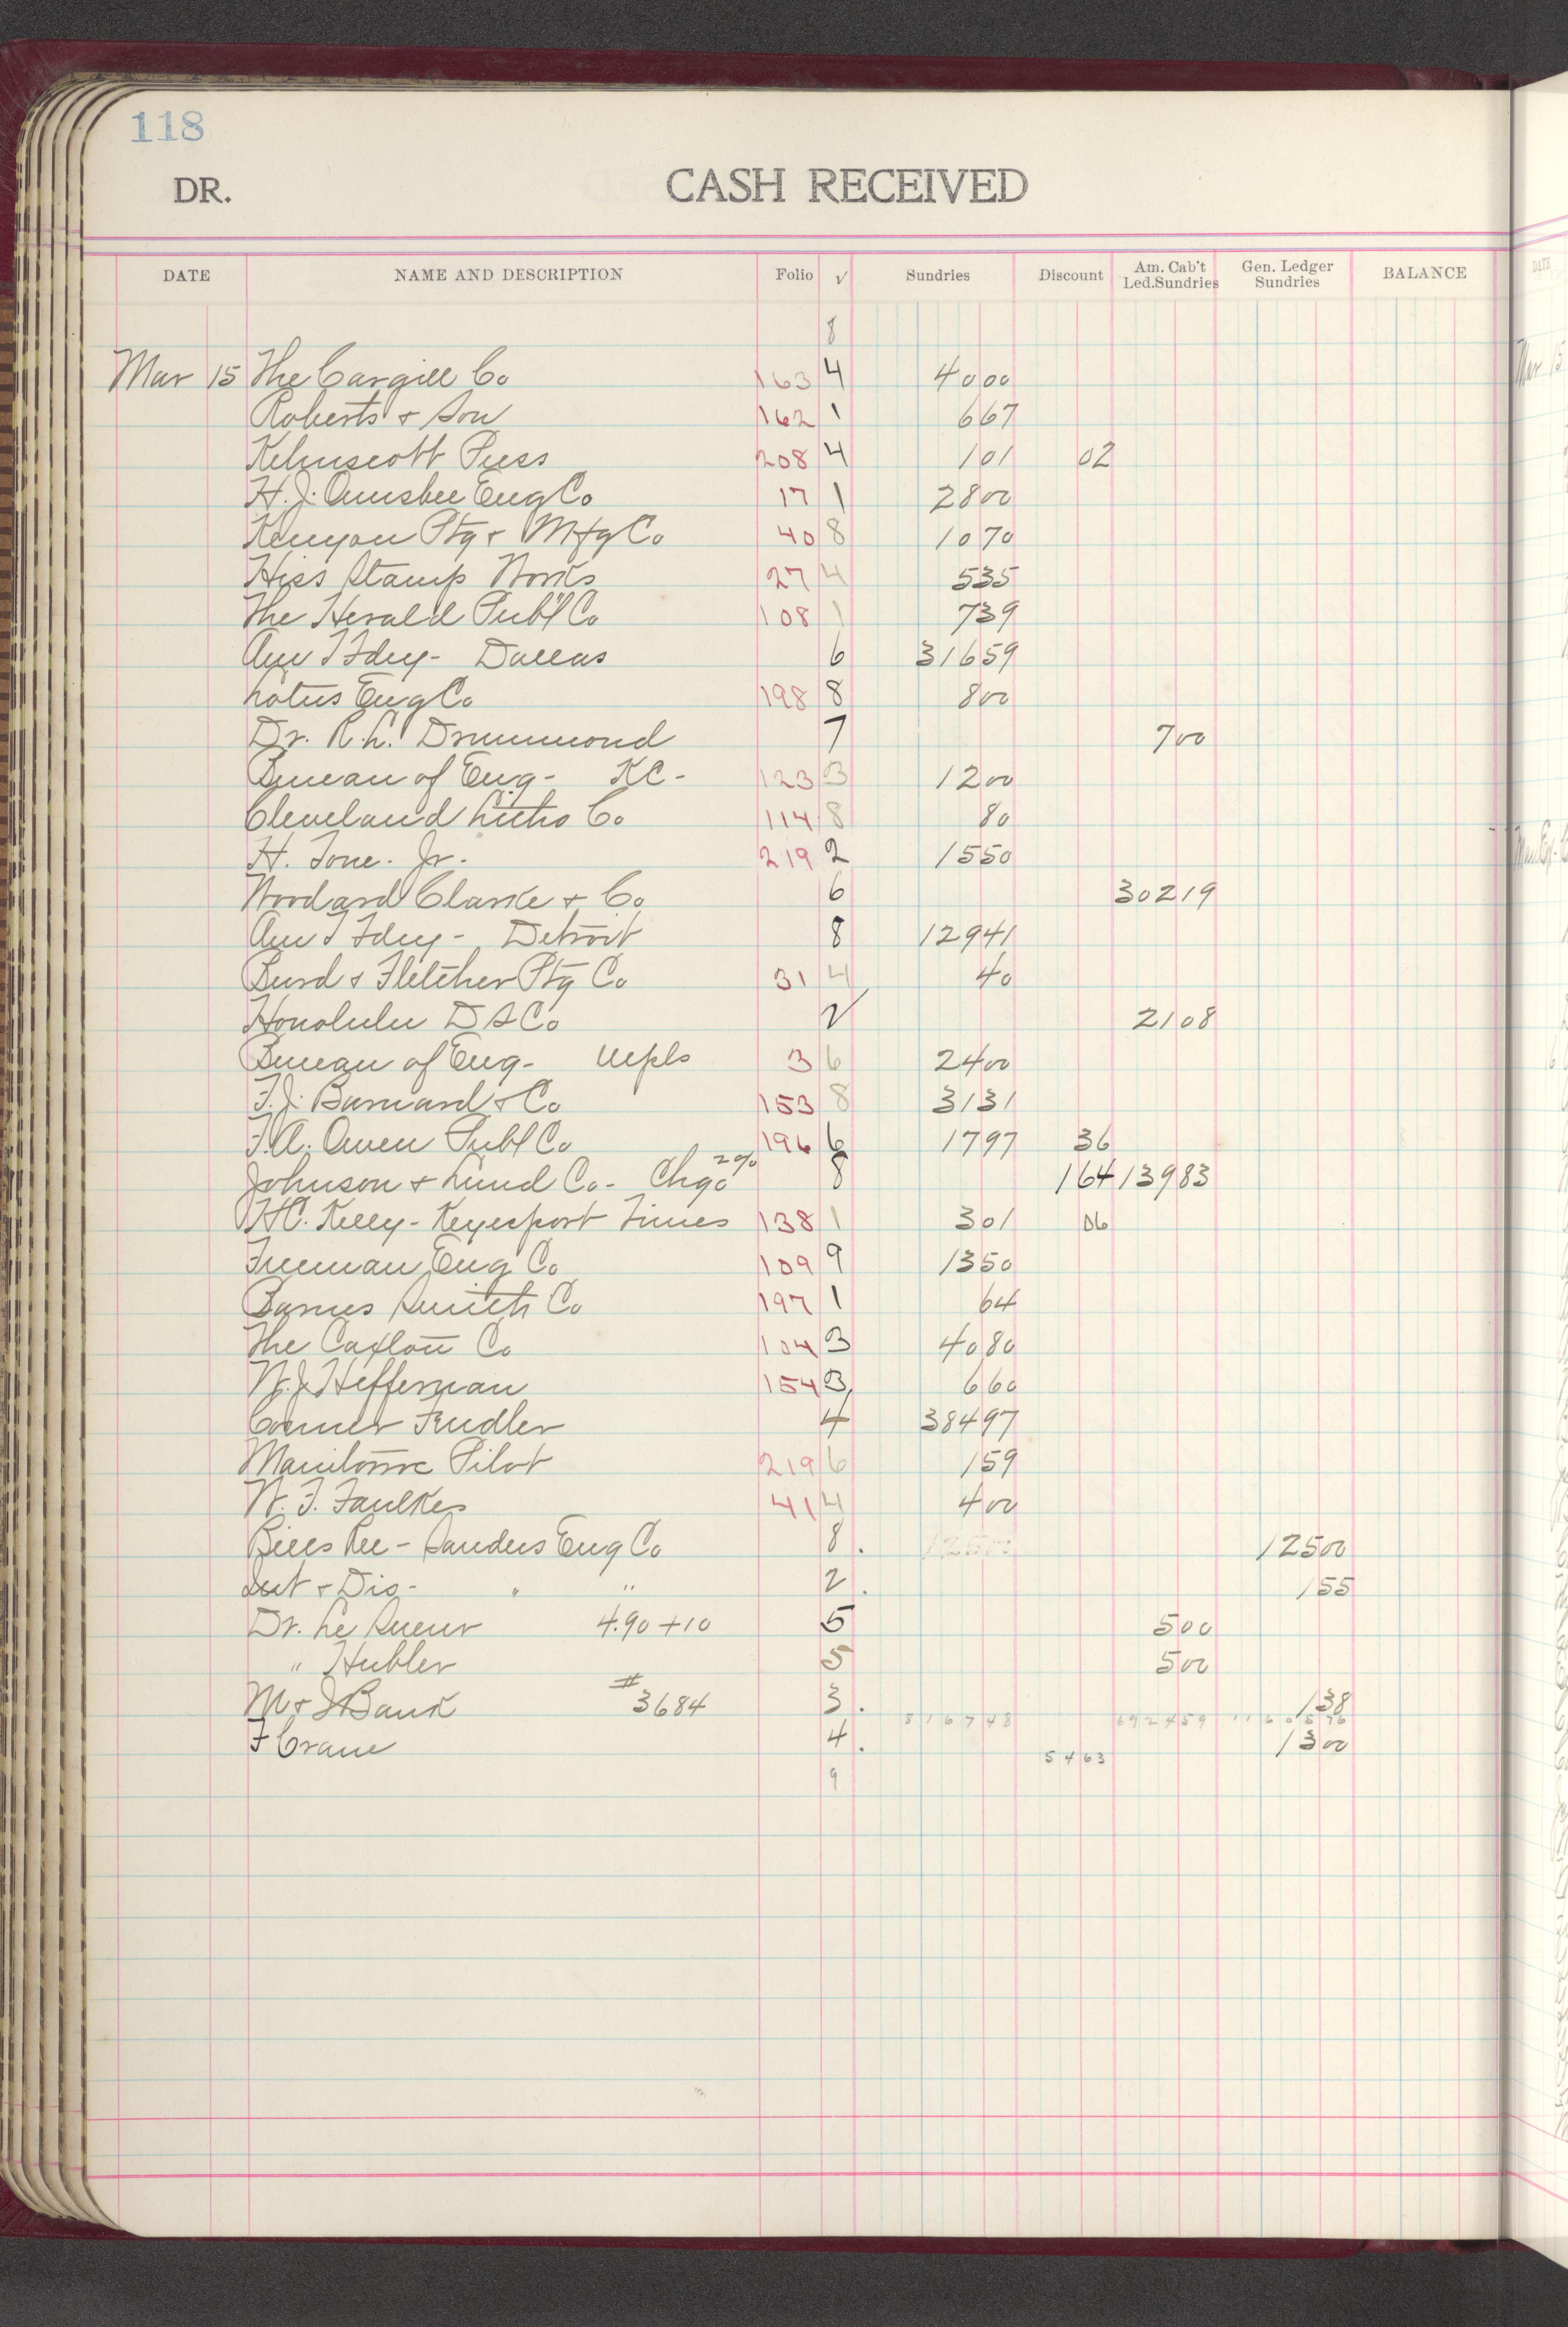 118
DR. CASH RECEIVED
DATE NAME AND DESCRIPTION Folio √ Sundries Discount Am. Cab't Led.Sundries Gen. Ledger Sundries BALANCE
8
Mar 15 The Cargill Co 163 4 4000
Roberts & Son 162 1 667
Kelmscott Press 208 4 101 02
H. J. Ormsbee Eng Co 17 1 2800
Kenyon Ptg & Mfg Co 40 8 1070
Hiss Stamp Works 27 4 535
The Herald Publ Co 108 1 739
Am T Fdry - Dallas 6 31659
Lotus Eng Co 198 8 800
Dr. R. L. Drummond 7 700
Bureau of Eng - KC - 123 3 1200
Cleveland Litho Co 114 8 80
H. Tone. Jr. 219 2 1550
Woodard Clarke & Co 6 30219
Am T Fdry - Detroit 8 12941
Burd & Fletcher Ptg Co 31 4 40
Honolulu D S Co 2 2108
Bureau of Eng - Mpls 3 6 2400
F. J. Barnard & Co 153 8 3131
F. A. Owen Publ Co 196 6 1797 36
Johnson & Lund Co - Chgo 2% 8 164 13983
H C. Kelly - Keyesport Times 138 1 301 06
Freeman Eng Co 109 9 1350
Barnes Smith Co 197 1 64
The Caxton Co 104 3 4080
W. J. Heffernan 154 3 660
Conner Fendler 4 38497
Manitowoc Pilot 219 6 159
W. F. Faulkes 41 4 400
Bills Rec - Sanders Eng Co 8 . 12500
Int & Dis - " " 2 . 155
Dr. Le Sueur 4.90 + 10 5 500
" Hubler 5 500
M & J Bank # 3684 3 . 138
816748 692459 1160576
F Crane 4 . 1300
5463
9